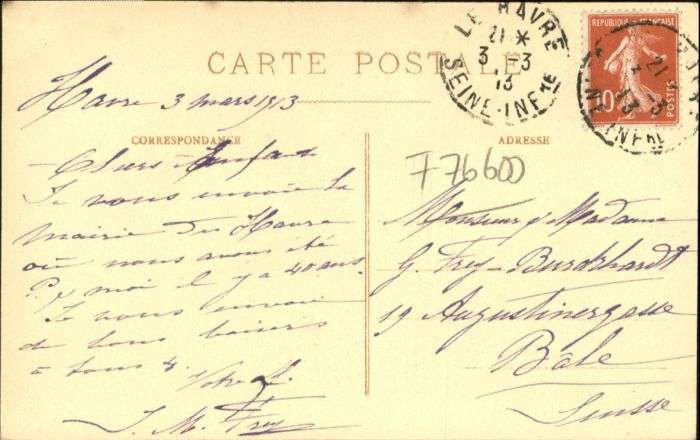 CARTE POSTALE
LE HAVRE
21 *
3 - 3
13
SEINE-INFRE
REPUBLIQUE FRANÇAISE
10
POSTES
Havre 3 mars 1913
CORRESPONDANCE
ADRESSE
F76600
Chers Enfants
Je vous envoie la
mairie du Havre
où nous avons été
moi il y a 40 ans.
Je vous envoie
de bons baisers
à tous 4.
Votre
J. M. Frey
Monsieur & Madame
G. Frey-Burckhardt
19 Augustinergasse
Bâle
Suisse